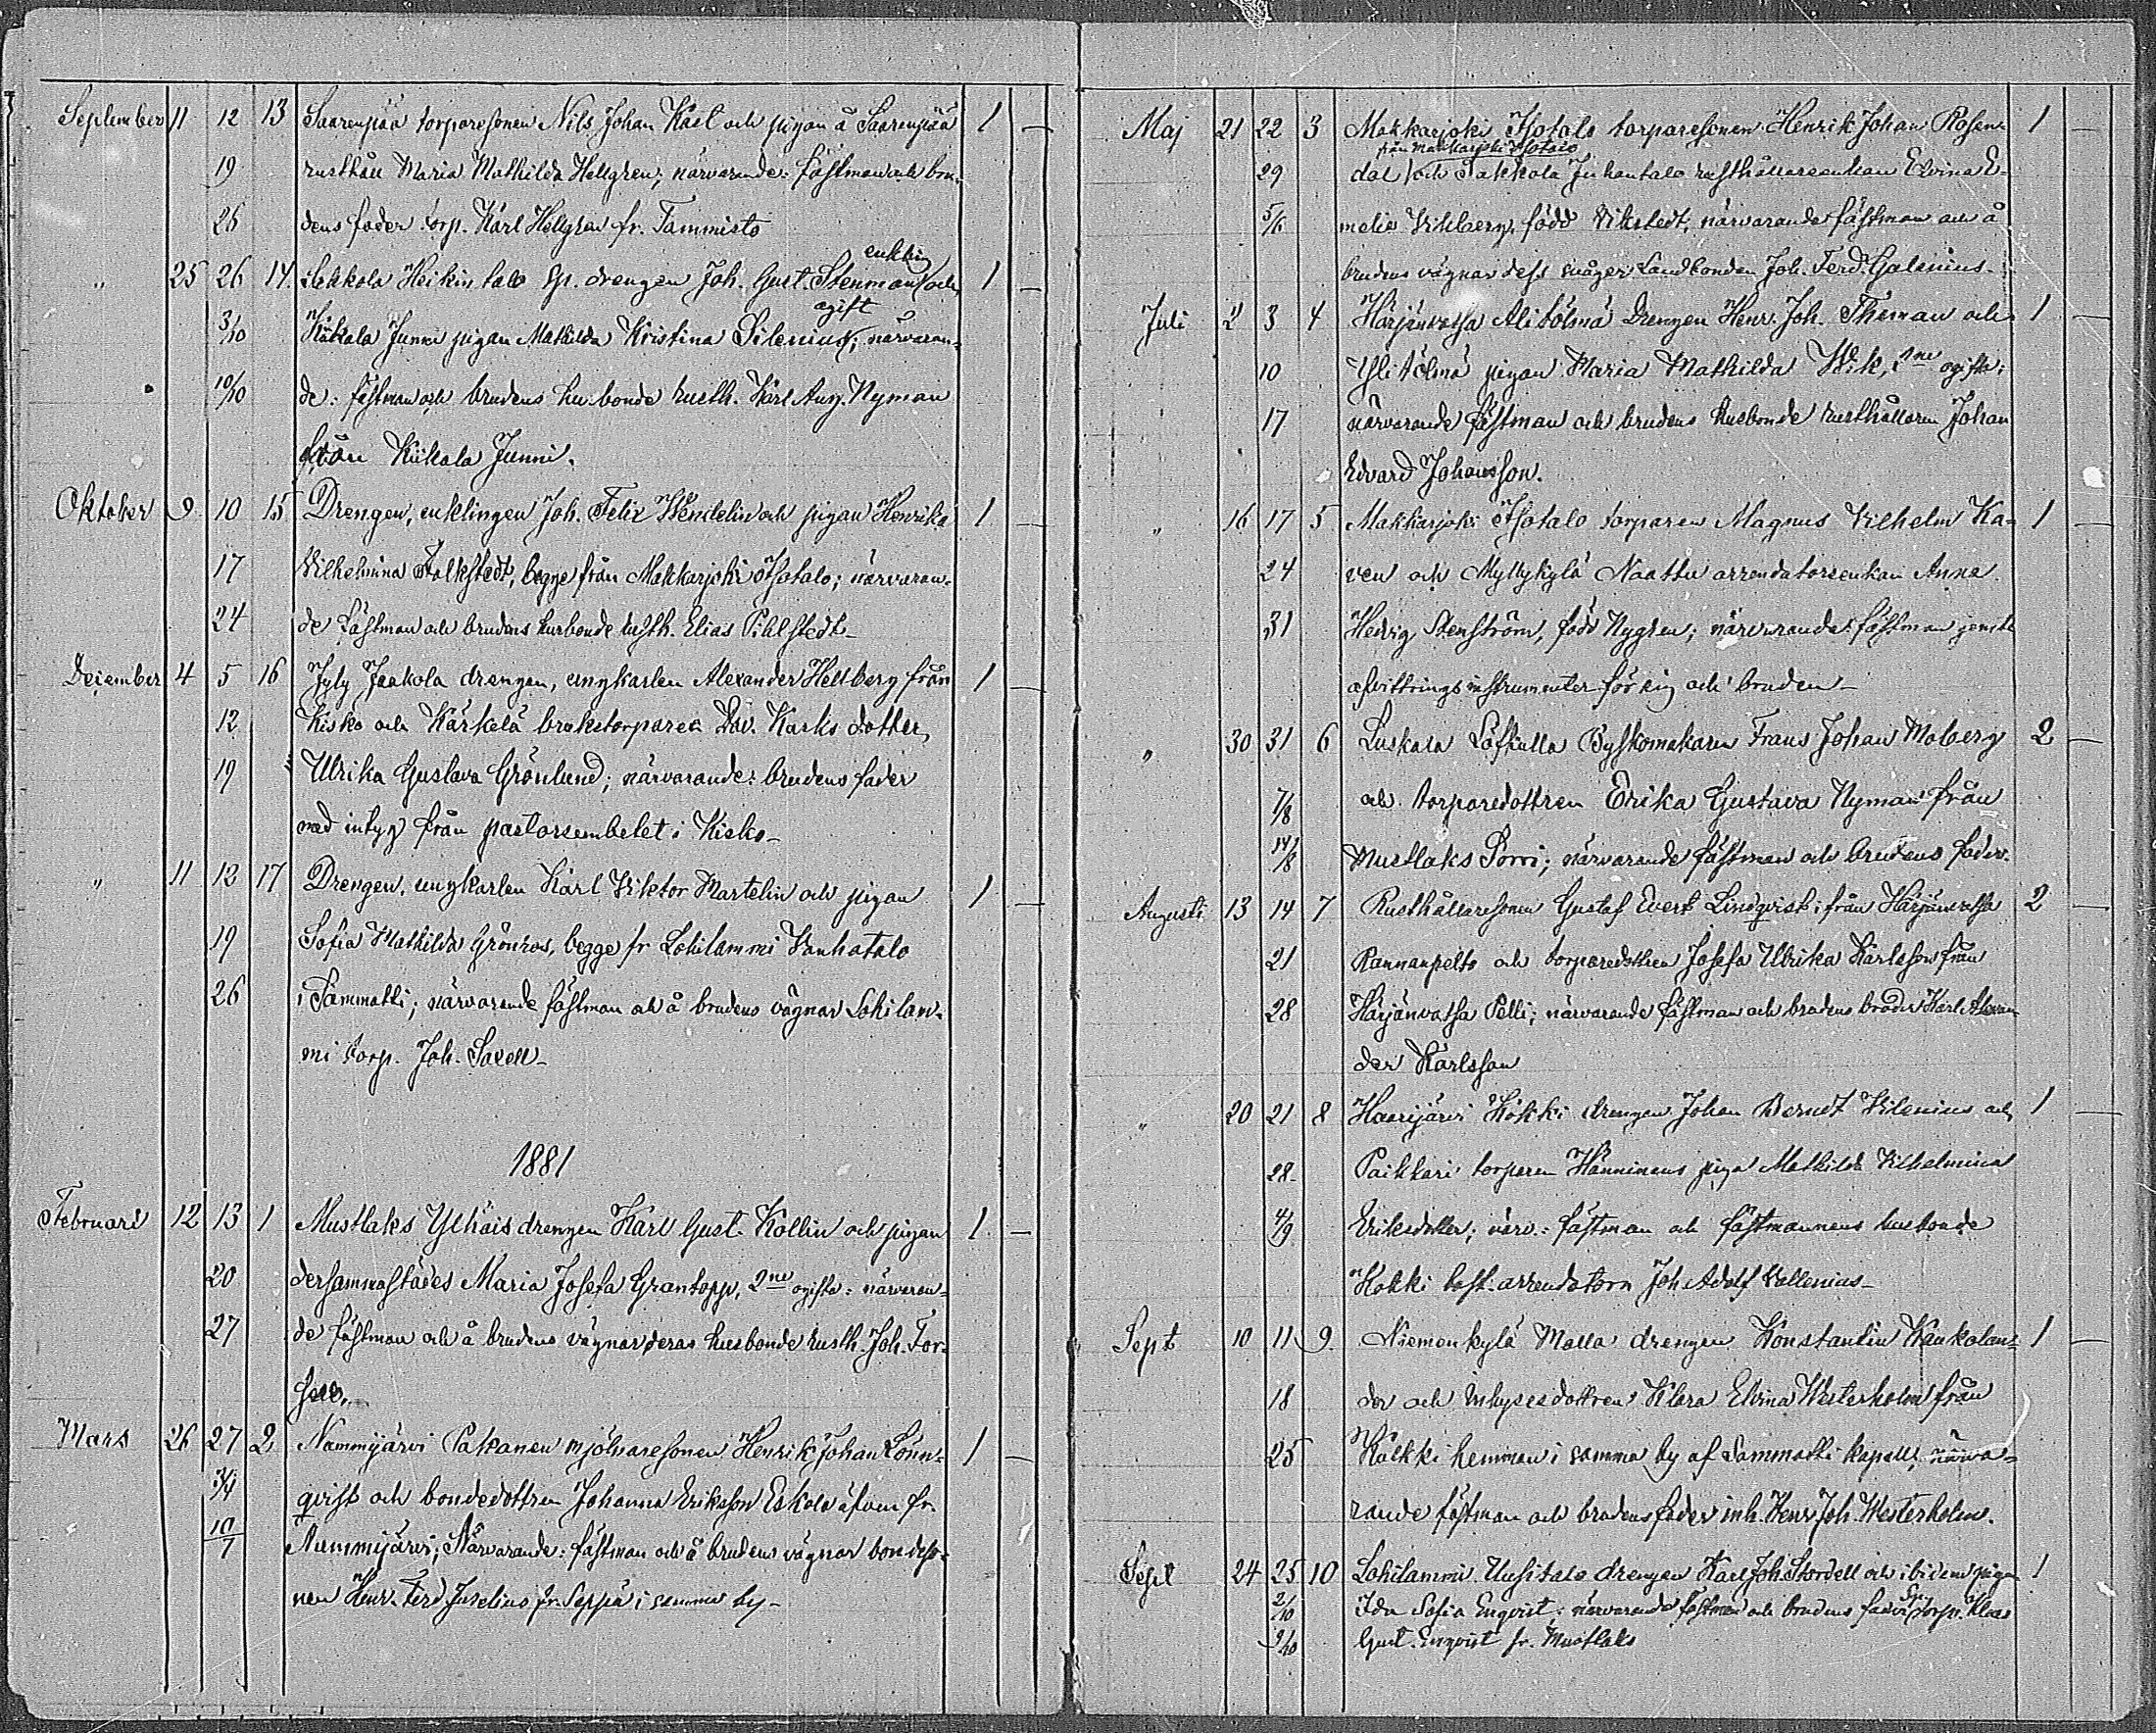 September 11 12 13 Saarenpää torparesonen Nils Johan Kast och pigan å Saarenpää 1 —
19 rusthåll Maria Mathilda Hellgren; närvarande: fästman och bru-
26 dens fader torp. Karl Hellgren fr. Tammisto
enkling
" 25 26 14 Sakkola Heikin talo sp. drengen Joh. Gust. Stenman och 1 —
ogift
3/10 Kiikala Junni pigan Mathilda Kristina Silenius; närvaran-
10/10 de: fästman och brudens husbonde rusth. Karl Aug. Nyman
från Kiikala Junni.
Oktober 9 10 15 Drengen, enklingen Joh. Felix Wendelin och pigan Henrika 1 —
17 Vilhelmina Falkstedt, begge från Makkarjoki Isotalo; närvaran-
24 de fästman och brudens husbonde rusth. Elias Pihlstedt —
December 4 5 16 Jyly Jaakola drengen, ungkarlen Alexander Hellberg från 1 —
12 Kisko och Kärkelä brukstorparen Dav. Karks dotter,
19 Ulrika Gustava Grönlund; närvarande: brudens fader
med intyg från pastorsembetet i Kisko —
" 11 12 17 Drengen, ungkarlen Karl Viktor Martelin och pigan 1 —
19 Sofia Mathilda Grönros, begge fr Lohilammi Vanhatalo
26 i Sammatti; närvarande fästman och å brudens vägnar Lohilam-
mi torp. Joh. Saxell —
1881
Februari 12 13 1 Mustlaks Ylhäis drengen Karl Gust. Kollin och pigan 1 —
20 dersammastädes Maria Josefa Grantopp, 2ne ogifta: närvaran-
27 de fästman och å brudens vägnar deras husbonde rusth. Joh. For-
sell.
Mars 26 27 2 Nammijärvi Pakanen mjölnaresonen Henrik Johan Lönn- 1 —
3/4 qvist och bondedottren Johanna Eriksson Eskola äfven fr.
10/ Nummijärvi; Närvarande: fästman och å brudens vägnar bondeso-
nen Henr. Ferd. Juselius fr. Seppä i samma by —
Maj 21 22 3 Makkarjoki Isotalo torparesonen Henrik Johan Rosen- 1 —
från Makkarjoki Isotalo
29 dal och Sakkola Juhantalo rusthållareenkan Elvina E-
5/6 melie Vikberg, född Vikstedt; närvarande fästman och å
brudens vägnar dess svåger Landbonden Joh. Ferd. Galenius.
Juli 2 3 4 Härjänvatsa Alitölmä Drengen Henr. Joh. Theman och 1 —
10 Ylitölmä pigan Maria Mathilda Wik, 2ne ogifta;
17 närvarande fästman och brudens husbonde rusthållaren Johan
Edvard Johansson.
" 16 17 5 Makkarjoki Isotalo torparen Magnus Vilhelm Ka- 1 —
24 ven och Myllykylä Naattu arrendatorsenkan Anna
31 Hedvig Stenström, född Nygren; närvarande fästman jemte
afvittringsinstrumenter för sig och bruden —
" 30 31 6 Luskala Löfkulla Byskomakaren Frans Johan Moberg 2 —
7/8 och torparedottren Erika Gustava Nyman från
14/8 Mustlaks Sorri; närvarande fästman och brudens fader.
Augusti 13 14 7 Rusthållaresonen Gustaf Evert Lindqvist från Härjänvatsa 2 —
21 Rannanpelto och torparedottren Josefa Ulrika Karlsson från
28 Härjänvatsa Pelli; närvarande fästman och brudens broder Karl Alexan
der Karlsson
" 20 21 8 Haarijärvi Kokki drengen Johan Berndt Vilenius och 1 —
28 Paikkari torparen Hänninens piga Mathilda Vilhelmina
4/9 Eriksdotter; närv.: fästman och fästmannens husbonde
Kokki arrendatorn Joh. Adolf Vallenius —
Sept 10 11 9 Niemenkylä Malla drengen Konstantin Kaukolan- 1 —
18 der och inhysesdottren Klara Elvina Westerholm från
25 Kälkki hemman i samma by af Sammatti kapell; närva-
rande fästman och brudens fader inh. Henr. Joh. Westerholm.
Sept 24 25 10 Lohilammi Uusitalo drengen Karl Joh. Stordell och ibidem pigan 1
2/10 Ida Sofia Enqvist; närvarande fästman och brudens fader Sp. torp. Klas
9/10 Gust. Enqvist fr. Mustlaks